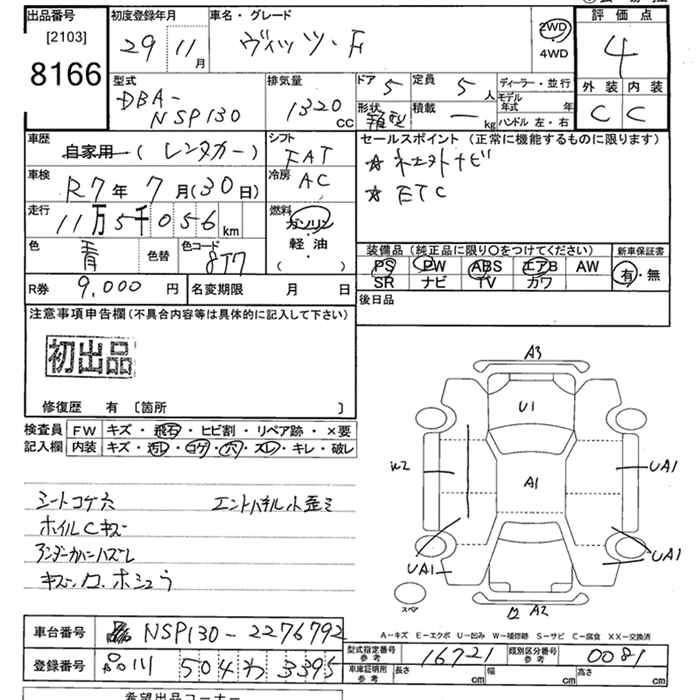 出品番号 初度登録年月 車名・グレード 評価点
[2103]
8166
29 11月 ヴィッツ・F 2WD 4WD 4
外装 内装
C C
型式 排気量 ドア 5 定員 5人 ディーラー・並行
DBA-NSP130 1320 CC 形状 箱型 積載 — kg モデル年式 年
ハンドル 左・右
車歴 シフト セールスポイント(正常に機能するものに限ります)
自家用 (レンタカー) FAT ☆ ネエストナビ
車検 冷房 ☆ ETC
R7年7月(30日) AC
走行 燃料
11万5千056km ガソリン・軽油
( )
色 色替 色コード 装備品(純正品に限り○をつけてください) 新車保証書
青 8T7 PS PW ABS エアB AW 有・無
SR ナビ TV カワ
R券 9,000円 名変期限 月 日 後日品
注意事項申告欄(不具合内容等は具体的に記入して下さい)
初出品
修復歴 有 〔箇所 〕
検査員 FW キズ・飛石・ヒビ割・リペア跡・×要
記入欄 内装 キズ・汚レ・コゲ・穴・スレ・キレ・破レ
シートコゲ穴 エンドパネル小歪ミ
ホイルCキズ
アンダーカバーハズレ
A3
U1
W2
A1
UA1
UA1
UA1
A2
スペア
A-キズ E-エクボ U-凹み W-補修跡 S-サビ C-腐食 XX-交換済
車台番号 NSP130-2276792
型式指定番号 参考 16721 類別区分番号 参考 0081
登録番号 品川 504 わ 3395
車庫証明所 参考 長さ cm 幅 cm 高さ cm
希望出品コーナー